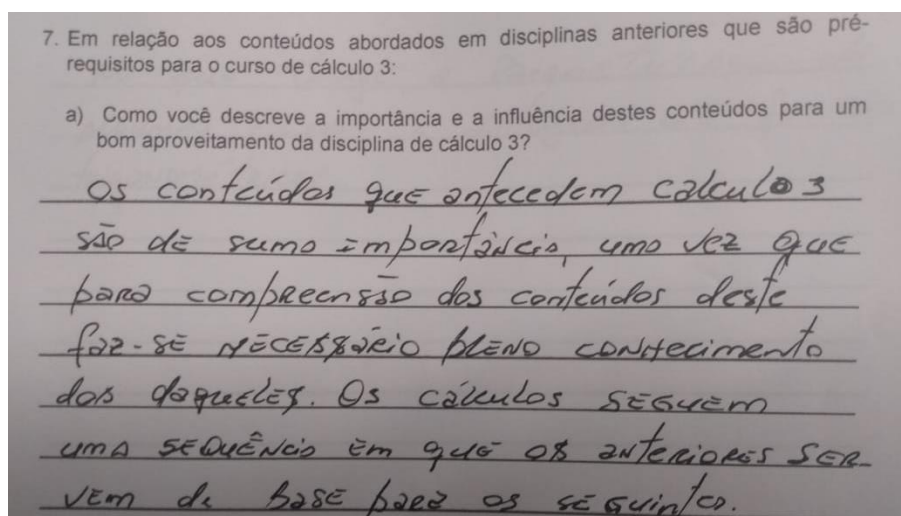 7. Em relação aos conteúdos abordados em disciplinas anteriores que são pré-
requisitos para o curso de cálculo 3:
a) Como você descreve a importância e a influência destes conteúdos para um
bom aproveitamento da disciplina de cálculo 3?
Os conteúdos que antecedem calculo 3
são de suma importância, uma vez que
para compreensão dos conteúdos deste
faz-se necessário pleno conhecimento
dos daqueles. Os cálculos seguem
uma sequência em que os anteriores ser-
vem de base para os seguintes.